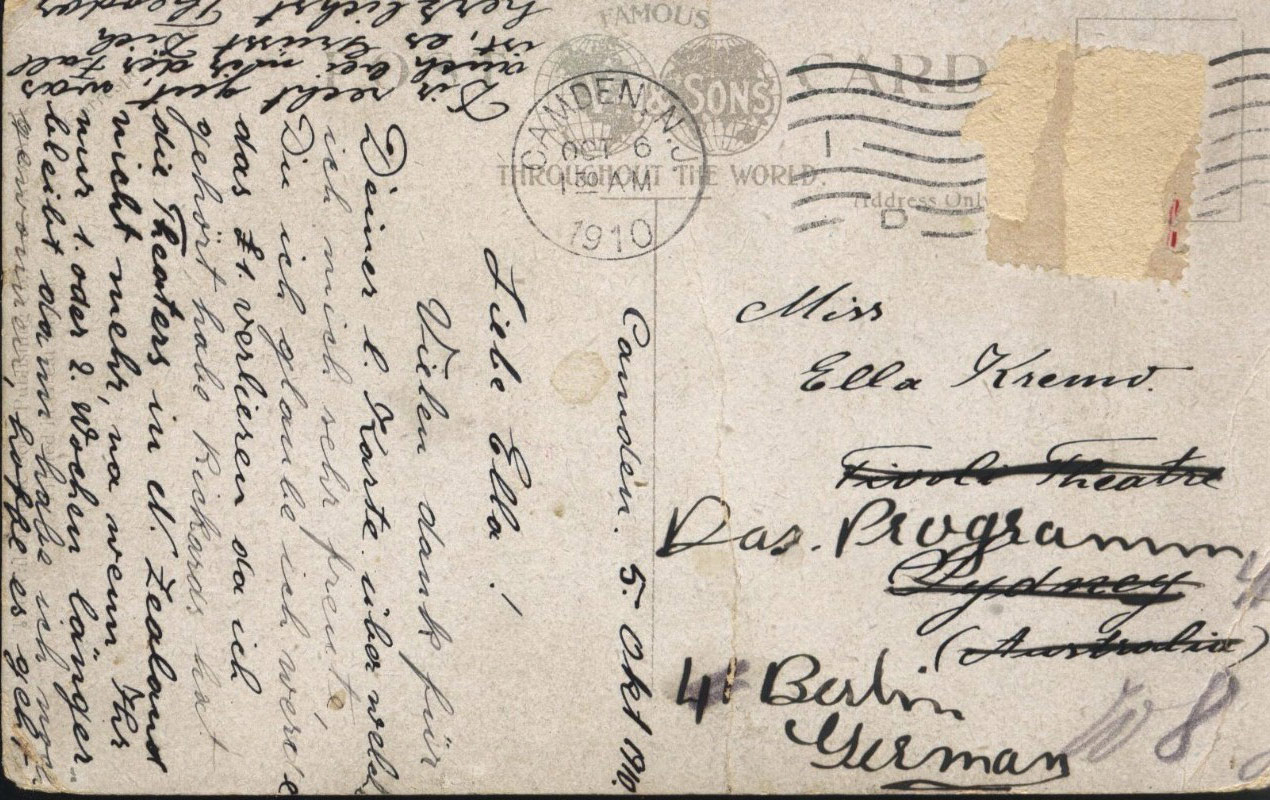 FAMOUS
POST CARD
& SONS
THROUGHOUT THE WORLD.
Address Only
CAMDEN, N.J.
OCT 6
1 30 AM
1910
1
D
Miss
Ella Kremo.
Tivoli Theatre
Das. Programm
Sydney
(Australia)
4 Berlin
German
W 8
Camden. 5. Okt 1910.
Liebe Ella!
Vielen dank für
Deiner l. Karte über welche
ich mich sehr freute,
Du ich glaube ich werde
das £1. verlieren da ich
gehört habe Rickards hat
die Theaters in N. Zealand
nicht mehr, na wenn Ihr
nur 1. oder 2. Wochen länger
bleibt dann habe ich noch
gewonnen, hoffe es geht
Dir recht gut, was
auch bei mir der Fall
ist, es Grüsst Dich
herzlichst Theodor